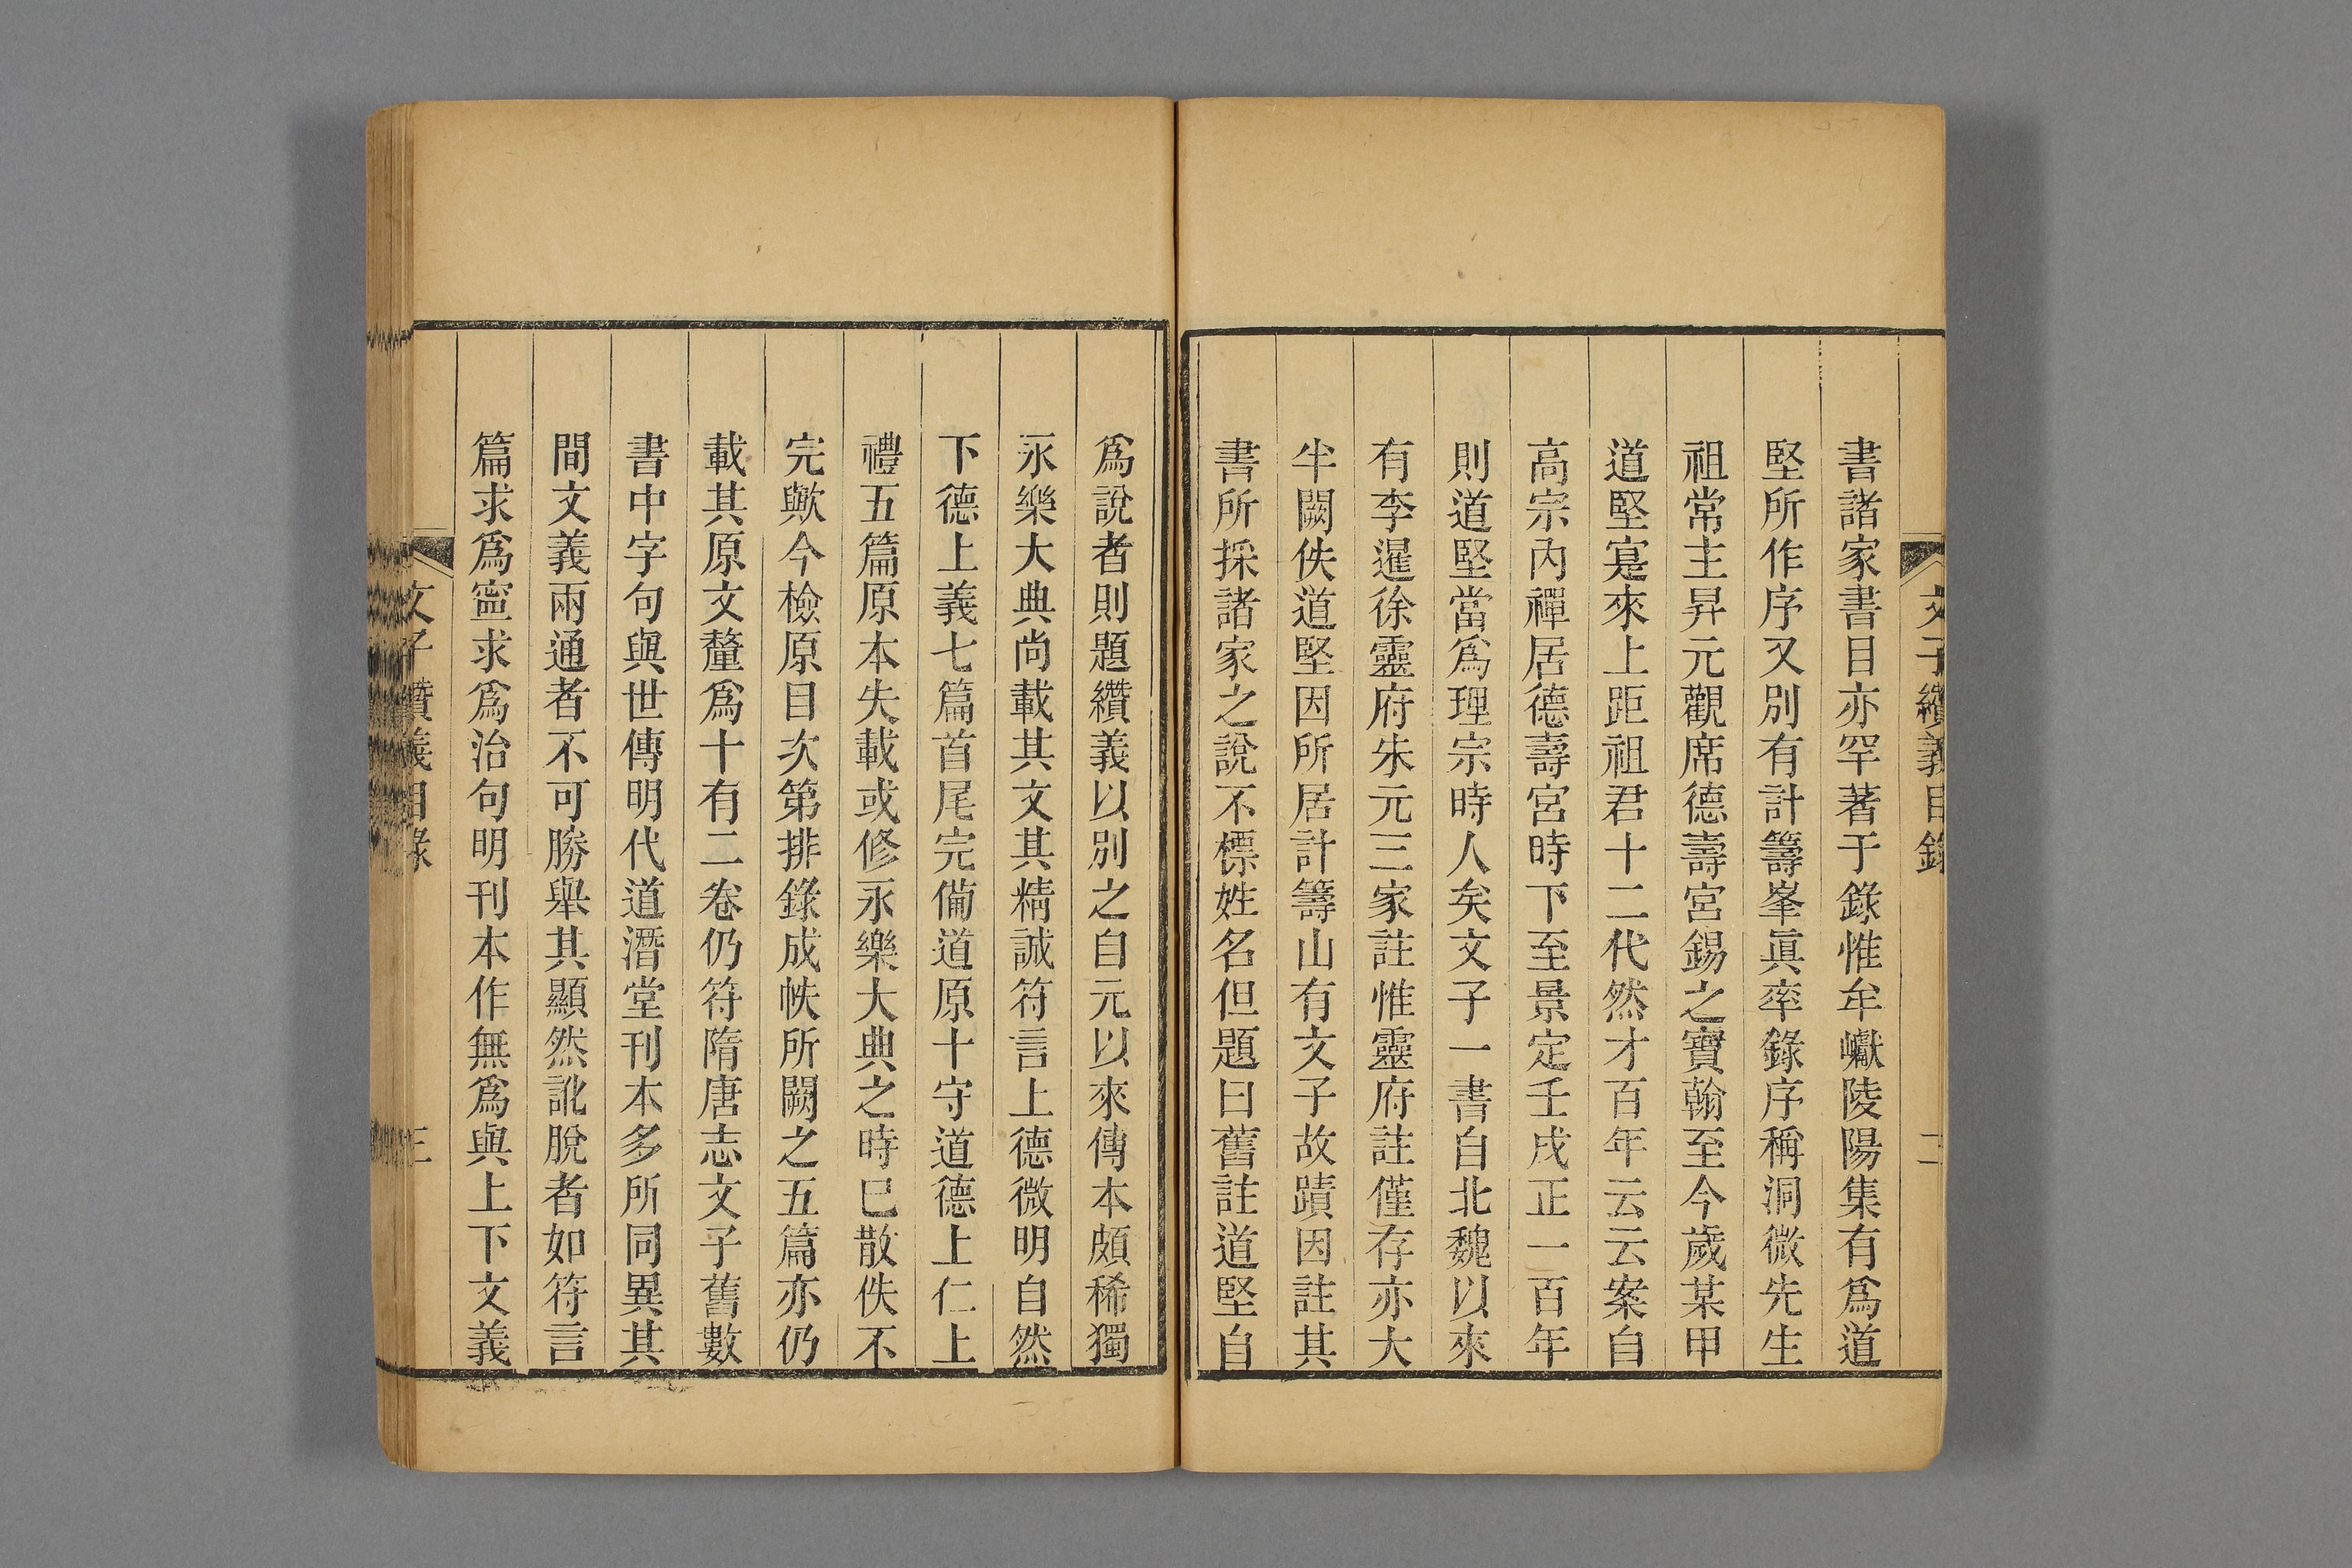 文子纘義目錄 二
書諸家書目亦罕著于錄惟牟巘陵陽集有爲道
堅所作序又別有計籌峯眞率錄序稱洞微先生
祖常主昇元觀席德壽宮錫之寶翰至今歲某甲
道堅寔來上距祖君十二代然才百年云云案自
高宗內禪居德壽宮時下至景定壬戌正一百年
則道堅當爲理宗時人矣文子一書自北魏以來
有李暹徐靈府朱元三家註惟靈府註僅存亦大
半闕佚道堅因所居計籌山有文子故蹟因註其
書所採諸家之說不標姓名但題曰舊註道堅自
爲說者則題纘義以別之自元以來傳本頗稀獨
永樂大典尚載其文其精誠符言上德微明自然
下德上義七篇首尾完備道原十守道德上仁上
禮五篇原本失載或修永樂大典之時已散佚不
完歟今檢原目次第排錄成帙所闕之五篇亦仍
載其原文釐爲十有二卷仍符隋唐志文子舊數
書中字句與世傳明代道潛堂刊本多所同異其
間文義兩通者不可勝舉其顯然訛脫者如符言
篇求爲寧求爲治句明刊本作無爲與上下文義
文子纘義目錄 三